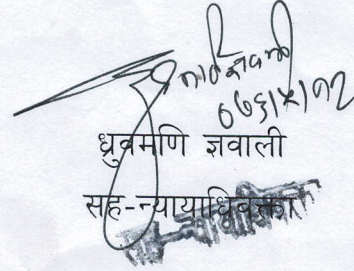 ०७६।५।१२
ध्रुवमणि ज्ञवाली
सह-न्यायाधिवक्ता